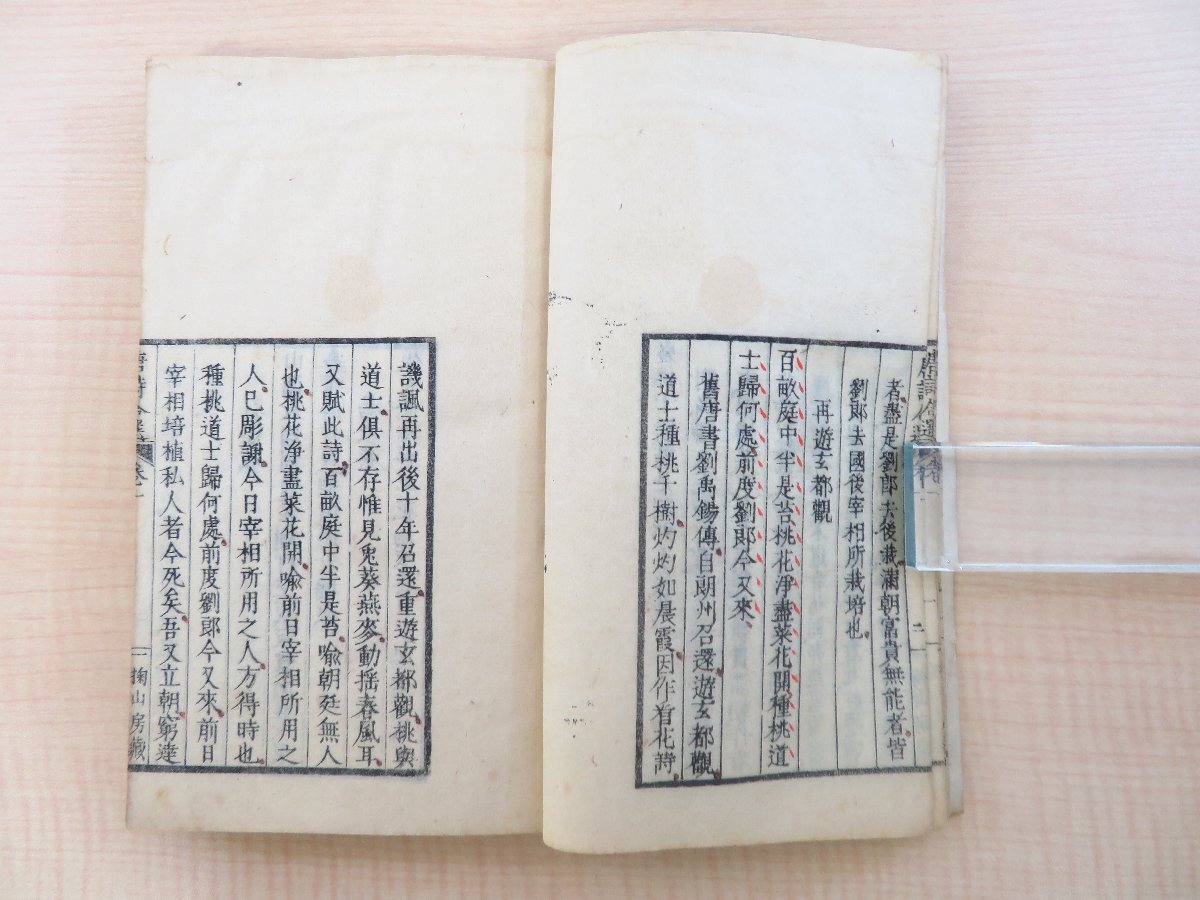 者盡是劉郎去後栽滿朝富貴無能者皆
劉郎去國後宰相所栽培也
再遊玄都觀
百畝庭中半是苔桃花淨盡菜花開種桃道
士歸何處前度劉郎今又來
舊唐書劉禹錫傳自朗州召還遊玄都觀
道士種桃千樹灼灼如晨霞因作看花詩
譏諷再出後十年召還重遊玄都觀桃與
道士俱不存惟見兎葵燕麥動揺春風耳
又賦此詩百畝庭中半是苔喩朝廷無人
也桃花浄盡菜花開喩前日宰相所用之
人已彫謝今日宰相所用之人方得時也
種桃道士歸何處前度劉郎今又來前日
宰相培植私人者今死矣吾又立朝窮達
卷一
掬山房藏